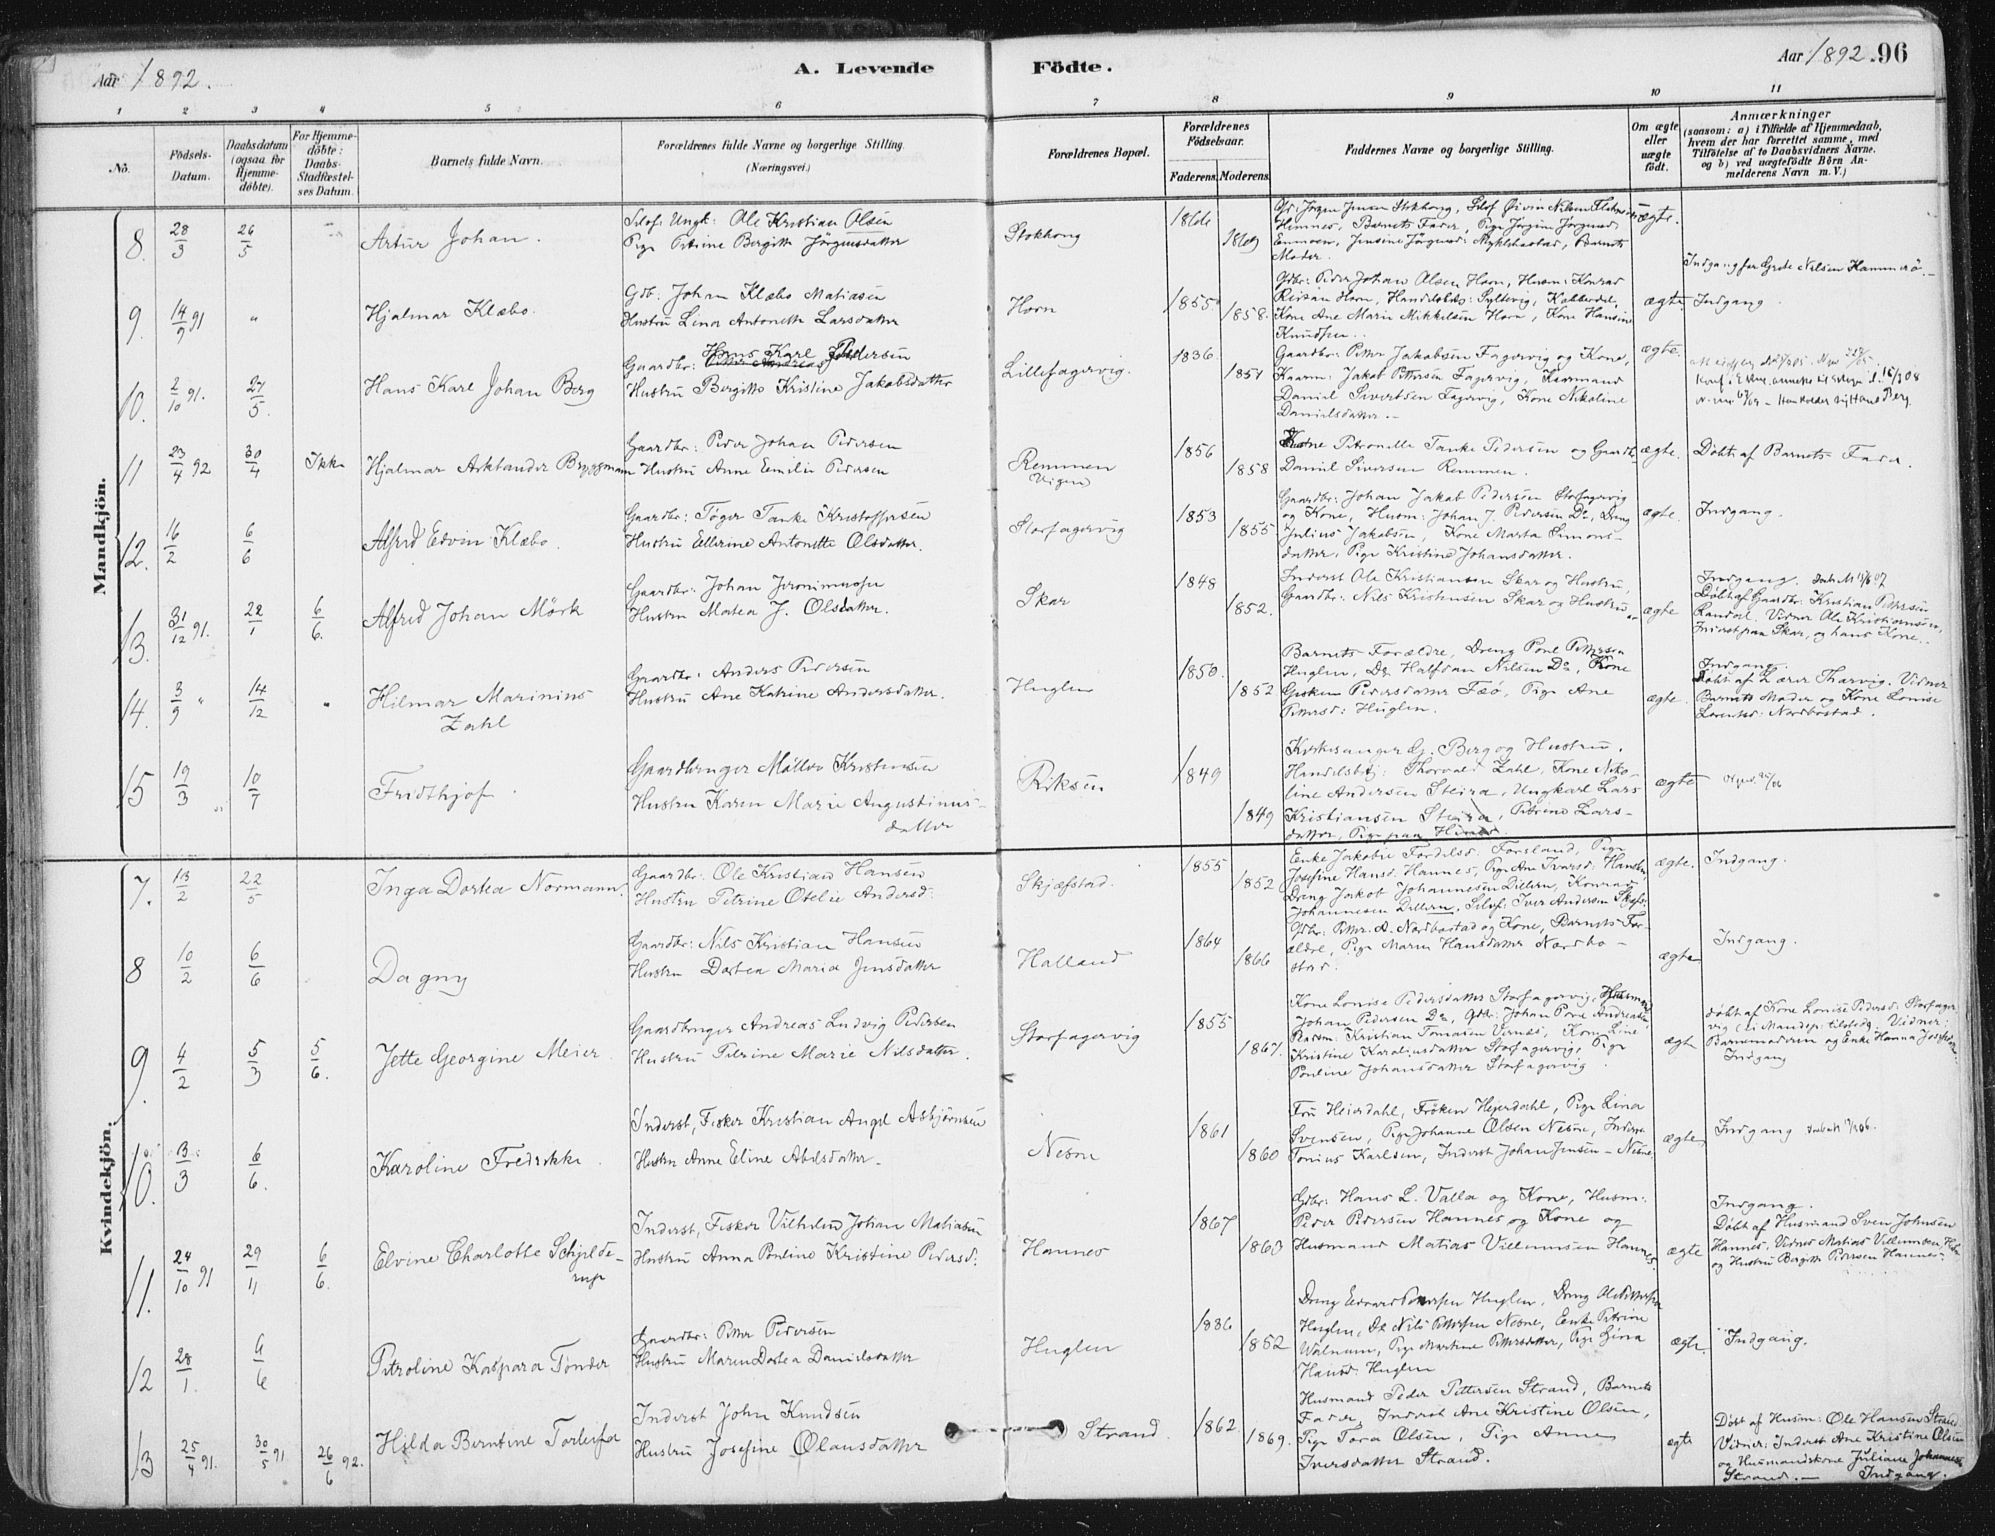 Aar 1892. A. Levende Födte. Aar 1892. 96
1 2 3 4 5 6 7 8 9 10 11
No. Födsels-Datum. Daabsdatum (ogsaa for Hjemme-döbte). For Hjemme-döbte: Daabs-Stadfæstel-ses Datum. Barnets fulde Navn. Forældrenes fulde Navne og borgerlige Stilling. (Næringsvei.) Forældrenes Bopæl. Forældrenes Födselsaar. Faderens. Moderens. Faddernes Navne og borgerlige Stilling. Om ægte eller uægte födt. Anmærkninger (saasom: a) i Tilfælde af Hjemmedaab, hvem der har forrettet samme, med Tilföielse af to Daabsvidners Navne. og b) ved uægtefödte Börn An-melderens Navn m. V.)
Mandkjön.
8. 28/3 26/5 Artur Johan.
Ungk: Ole Kristian Olsen
Pige Petrine Bergitte Jörgensdatter
Stokhong 1866 1869
Jörgen Jensen Stokhong,
Barnets Fader, Pige Jörgine
Moder.
ægte.
Indgang for Grete Nilsen Hammerö.
9. 14/9 91 " Hjalmar Klæbo.
Gdb: Johan Klæbo Matiasen
Hustru Lina Antonette Larsdatter
Horn 1855 1858.
Gdbr: Peder Johan Olsen Horn, Husm: Konrad
Horn,
Kone Ane Marie Mikkelsen Horn, Kone Hansine
Knudsen.
ægte. Indgang.
10. 2/10 91. 27/5. Hans Karl Johan Berg
Hans Karl Pedersen
Gaardbr:
Hustru Bergitte Kristine Jakobsdatter
Lillefagervig. 1836. 1851
Gaardbr: Petter Jakobsen Fagervig og Kone,
Kaarm: Jakob Pettersen Fagervig, Kaarmand
Daniel Sivertsen Fagervig, Kone Nikoline
Danielsdatter.
ægte.
11 23/4 92 30/4 Ikke Hjalmar Arktander Bryggmann
Gaardbr: Peder Johan Pedersen
Hustru Anne Emilie Pedersen
Remmen
Vigen
1856 1858
Kone Petronelle Tanke Pedersen og Gaardb.
Daniel Siversen Remmen.
ægte. Döbt af Barnets Fader.
12. 16/2 6/6 Alfred Edvin Klæbo.
Gaardbr: Töger Tanke Kristoffersen
Hustru Ellerine Antonette Olsdatter.
Storfagervig 1853 1855
Gaardbr: Johan Jakob Pedersen Storfagervig
og Kone, Husm: Johan J. Pedersen Do, Dreng
Julius Jakobsen, Kone Marta Simons-
datter, Pige Kristine Johansdatter.
ægte. Indgang.
13. 31/12 91. 22/1 6/6. Alfred Johan Mörk
Gaardbr: Johan Jeronimussen
Hustru Matea J. Olsdatter.
Skar 1848 1852.
Inderst Ole Kristiansen Skar og Hustru,
Gaardbr: Nils Kristensen Skar og Hustru
ægte
Indgang.
Döbt af Gaardbr: Kristian Pettersen
Vidner Ole Kristiansen,
Inderst paa Skar, og hans Kone.
14. 3/9 " 14/12 " Hilmar Marinius
Zahl
Gaardbr: Anders Pedersen
Hustru Ane Katrine Andersdatter.
Huglen 1850. 1852
Barnets Forældre, Dreng Pone Pettersen
Huglen, Do Halfdan Nilsen Do, Kone
Gesken Pedersdatter Fæö, Pige Ane
Pettersd: Huglen.
ægte.
Indgang.
Döbt af Lærer Tharvig. Vidner
Barnets Moder og Kone Lovise
Lorentsd: Nordbostad.
15 19/3 10/7 Fridthjof.
Gaardbruger Mölløv Kristensen
Hustru Karen Marie Augustinus-
datter
Riksen 1849 1849
Kirkesanger G. Berg og Hustru,
Handelsbtj: Thorvald Zahl, Kone Niko-
line Andersen Steira, Ungkarl Lars
Kristiansen Steira, Petrine Lars-
datter, Pige paa
ægte
Kvindekjön.
7. 13/2 22/5 Inga Dortea Normann.
Gaardbr: Ole Kristian Hansen
Hustru Petrine Otelie Andersd:
Skjæfstad. 1855 1852
Enke Jakobie Fordelsd: Forsland, Pige
Josefine Hansd. Hannes, Pige Ane Iversd:
Dreng Jakob Johannesen Zillern, Konrad
Johannesen Zillern, Iver Andersen
ægte. Indgang.
8 10/2 6/6 Dagny
Gaardbr: Nils Kristian Hansen
Hustru Dortea Maria Jensdatter
Halland 1864 1866
Gdbr: Petter A. Nordbostad og Kone, Barnets For-
ældre, Pige Maren Hansdatter Nordbo-
stad.
ægte Indgang.
9. 4/2 5/3 5/6. Jette Georgine Meier.
Gaardbruger Andreas Ludvig Pedersen
Hustru Petrine Marie Nilsdatter.
Storfagervig 1855 1867.
Kone Lovise Pedersdatter Storfagervig, Husmand
Johan Pedersen Do, Gdbr: Johan Pone Andreassen
Kristian Tomasen Vernes, Kone Line
Kristine Karoliusdatter Storfagervig, Pige
Pauline Johansdatter Storfagervig.
ægte
Döbt af Kone Lovise Pedersd: Storfager
vig (ei Mandsp: tilstede). Vidner:
Barnemoderen og Enke Hanna Josefsdatter
Indgang
10. 3/3 6/6. Karoline Fredrikke.
Inderst, Fisker Kristian Angel Asbjörnsen
Hustru Anne Eline Abelsdatter
Nesne 1861 1860
Fru Heierdahl, Fröken Heierdahl, Pige Lina
Svensen, Pige Johanne Olsen Nesne, Inderst
Tonius Karlsen, Inderst Johan Jensen - Nesne.
ægte Indgang
11. 24/10 91 29/11 6/6. Elvine Charlotte Schjelde-
rup
Inderst, Fisker Vilhelm Johan Matiasen
Hustru Anna Pauline Kristine Pedersd:
Hannes 1867 1860
Gdbr: Hans L. Valla og Kone, Husm:
Peder Pedersen Hannes og Kone og
Husmand Matias Villumsen Hannes.
ægte
Indgang.
Döbt af Husmand Sven Johnsen
Hannes, Vidner Matias Villumsen,
og Hustru Bergitte Pedersen Hannes.
12 28/1. 6/6 Petroline Kaspara Tönder
Gaardbr: Petter Pedersen
Hustru Maren Dortea Danielsdatter
Huglen 1836 1852
Dreng Edvard Pettersen Huglen, Dreng Ole Pettersen
Huglen, Do Nils Pettersen Nesne, Enke Petrine
Walnum, Pige Martine Pettersdatter, Pige Gina
Hansd: Huglen
ægte. Indgang.
13 25/4 91. 30/5 91 26/6 92. Hilda Berntine Torleifsa
Inderst John Knudsen
Hustru Josefine Olausdatter
Strand. 1862 1869.
Husmand Peder Pettersen Strand, Barnets
Fader, Inderst Ane Kristine Olsen,
Pige Tora Olsen, Pige Anne
Iversdatter Strand.
ægte
Döbt af Husm: Ole Hansen Strand
Vidner: Inderst Ane Kristine Olsen
og Husmandskone Juliane Johannes
Strand. — Indgang.